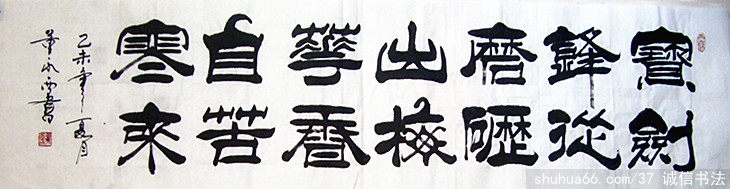 寶劍
鋒從
磨礪
出梅
華香
自苦
寒來
乙未年夏月
shuhua66.com/37 诚信书法